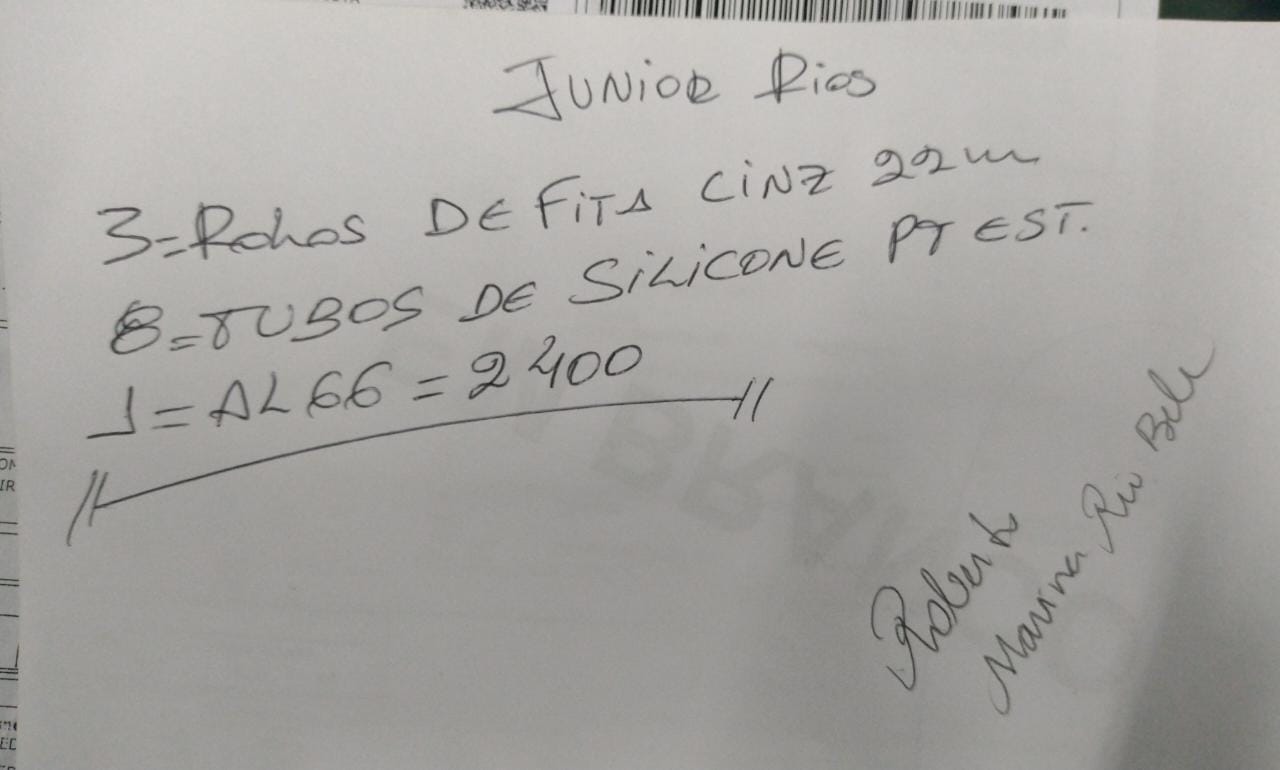 JUNIOR Rios
3=Rolos DE FITA CINZ 22m
8=TUBOS DE SILICONE PT EST.
1=AL66=2400
Roberto
Marina Rio Bel